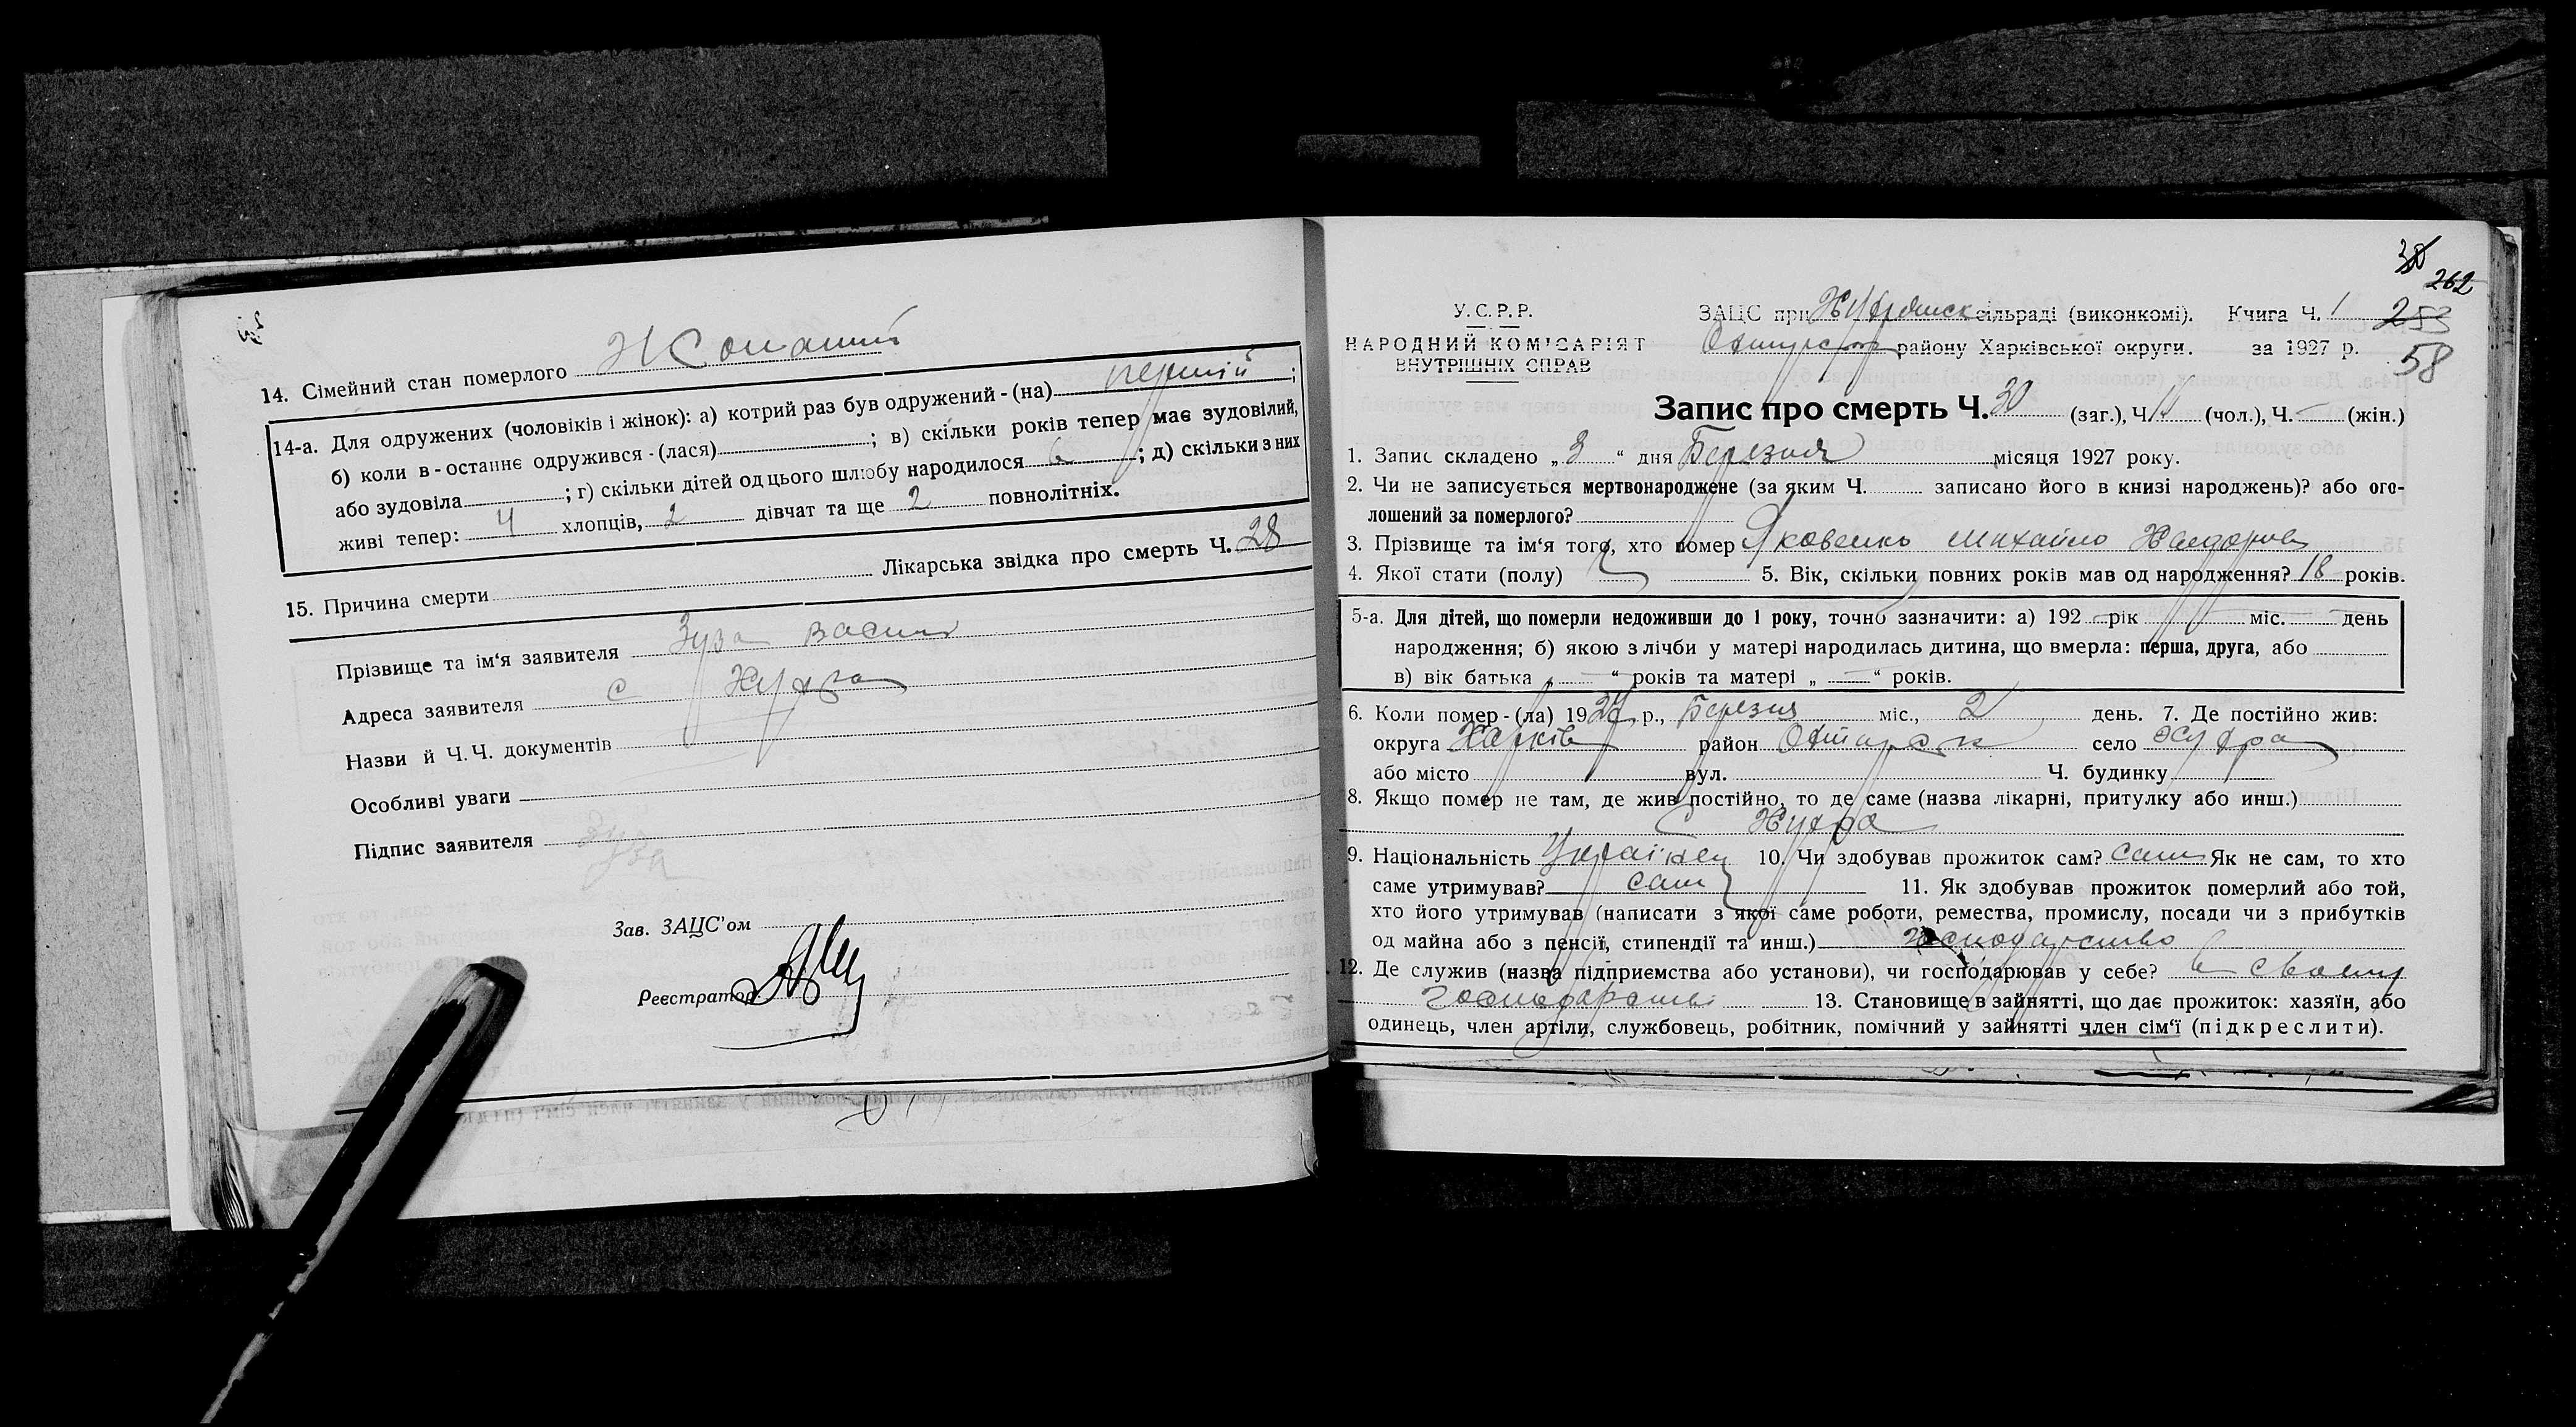 14. Сімейний стан померлого
14-а. Для одружених (чоловіків і жінок): а) котрий раз був одружений - (на) перший ;
б) коли в-останнє одружився - (лася) ; в) скільки років тепер має зудовілий,
або зудовіла ; г) скільки дітей од цього шлюбу народилося 6 ; д) скільки з них
живі тепер: 4 хлопців, 2 дівчат та ще 2 повнолітніх.
15. Причина смерти Лікарська звідка про смерть Ч. 28
Прізвище та ім'я заявителя Зуза
Адреса заявителя с
Назви й Ч.Ч. документів
Особливі уваги
Підпис заявителя Зуза
Зав. ЗАЦС'ом
Реєстратор
38
262
У.С.Р.Р. ЗАЦС при сільраді (виконкомі). Книга Ч. 1 253
НАРОДНИЙ КОМІСАРІЯТ району Харківської округи. за 1927 р. 58
ВНУТРІШНІХ СПРАВ
Запис про смерть Ч. 30 (заг.), Ч. 11 (чол.), Ч. — (жін.)
1. Запис складено „ 3 “ дня Березня місяця 1927 року.
2. Чи не записується мертвонароджене (за яким Ч. записано його в книзі народжень)? або ого-
лошений за померлого?
3. Прізвище та ім'я того, хто помер Яковенко Михайло
4. Якої стати (полу) 5. Вік, скільки повних років мав од народження? 18 років.
5-а. Для дітей, що померли недоживши до 1 року, точно зазначити: а) 192 — рік — міс. — день
народження; б) якою з лічби у матері народилась дитина, що вмерла: перша, друга, або
в) вік батька „ — “ років та матері „ — “ років.
6. Коли помер - (ла) 1927 р., Березня міс., 2 день. 7. Де постійно жив:
округа Харків район село
або місто вул. Ч. будинку
8. Якщо помер не там, де жив постійно, то де саме (назва лікарні, притулку або инш.)
С
9. Національність Українец 10. Чи здобував прожиток сам? сам Як не сам, то хто
саме утримував? сам 11. Як здобував прожиток померлий або той,
хто його утримував (написати з якої саме роботи, ремества, промислу, посади чи з прибутків
од майна або з пенсії, стипендії та инш.) господарство
12. Де служив (назва підприємства або установи), чи господарював у себе? в своему
господарстві 13. Становище в зайнятті, що дає прожиток: хазяїн, або
одинець, член артіли, службовець, робітник, помічний у зайнятті член сім'ї (підкреслити).